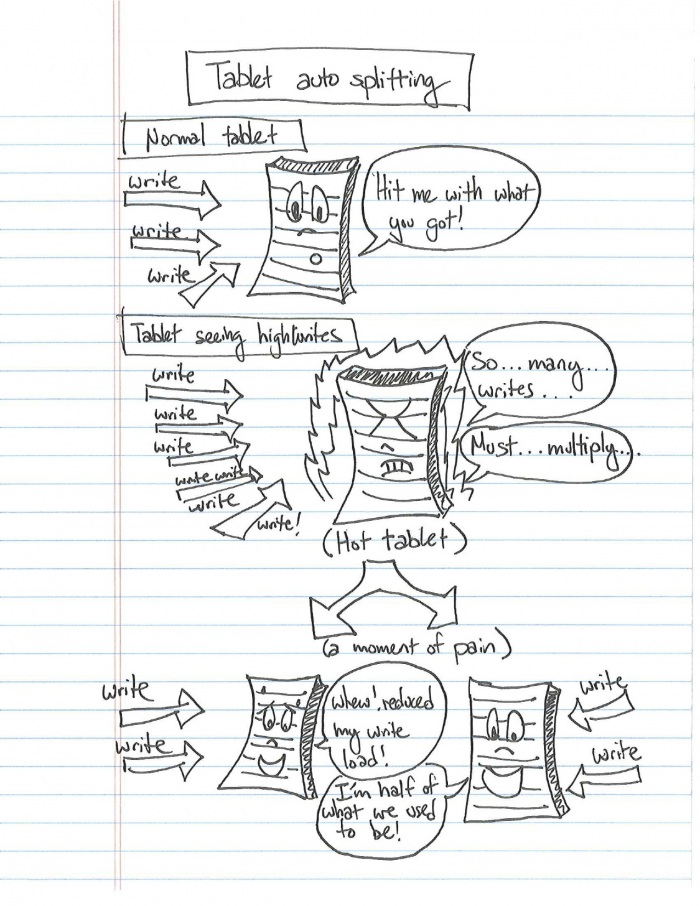 Tablet auto splitting
Normal tablet
write
write
write
Hit me with what
you got!
Tablet seeing high writes
write
write
write
write write
write
write!
So...many....
writes...
Must...multiply....
(Hot tablet)
(a moment of pain)
write
write
whew!, reduced
my write
load!
I'm half of
what we used
to be!
write
write